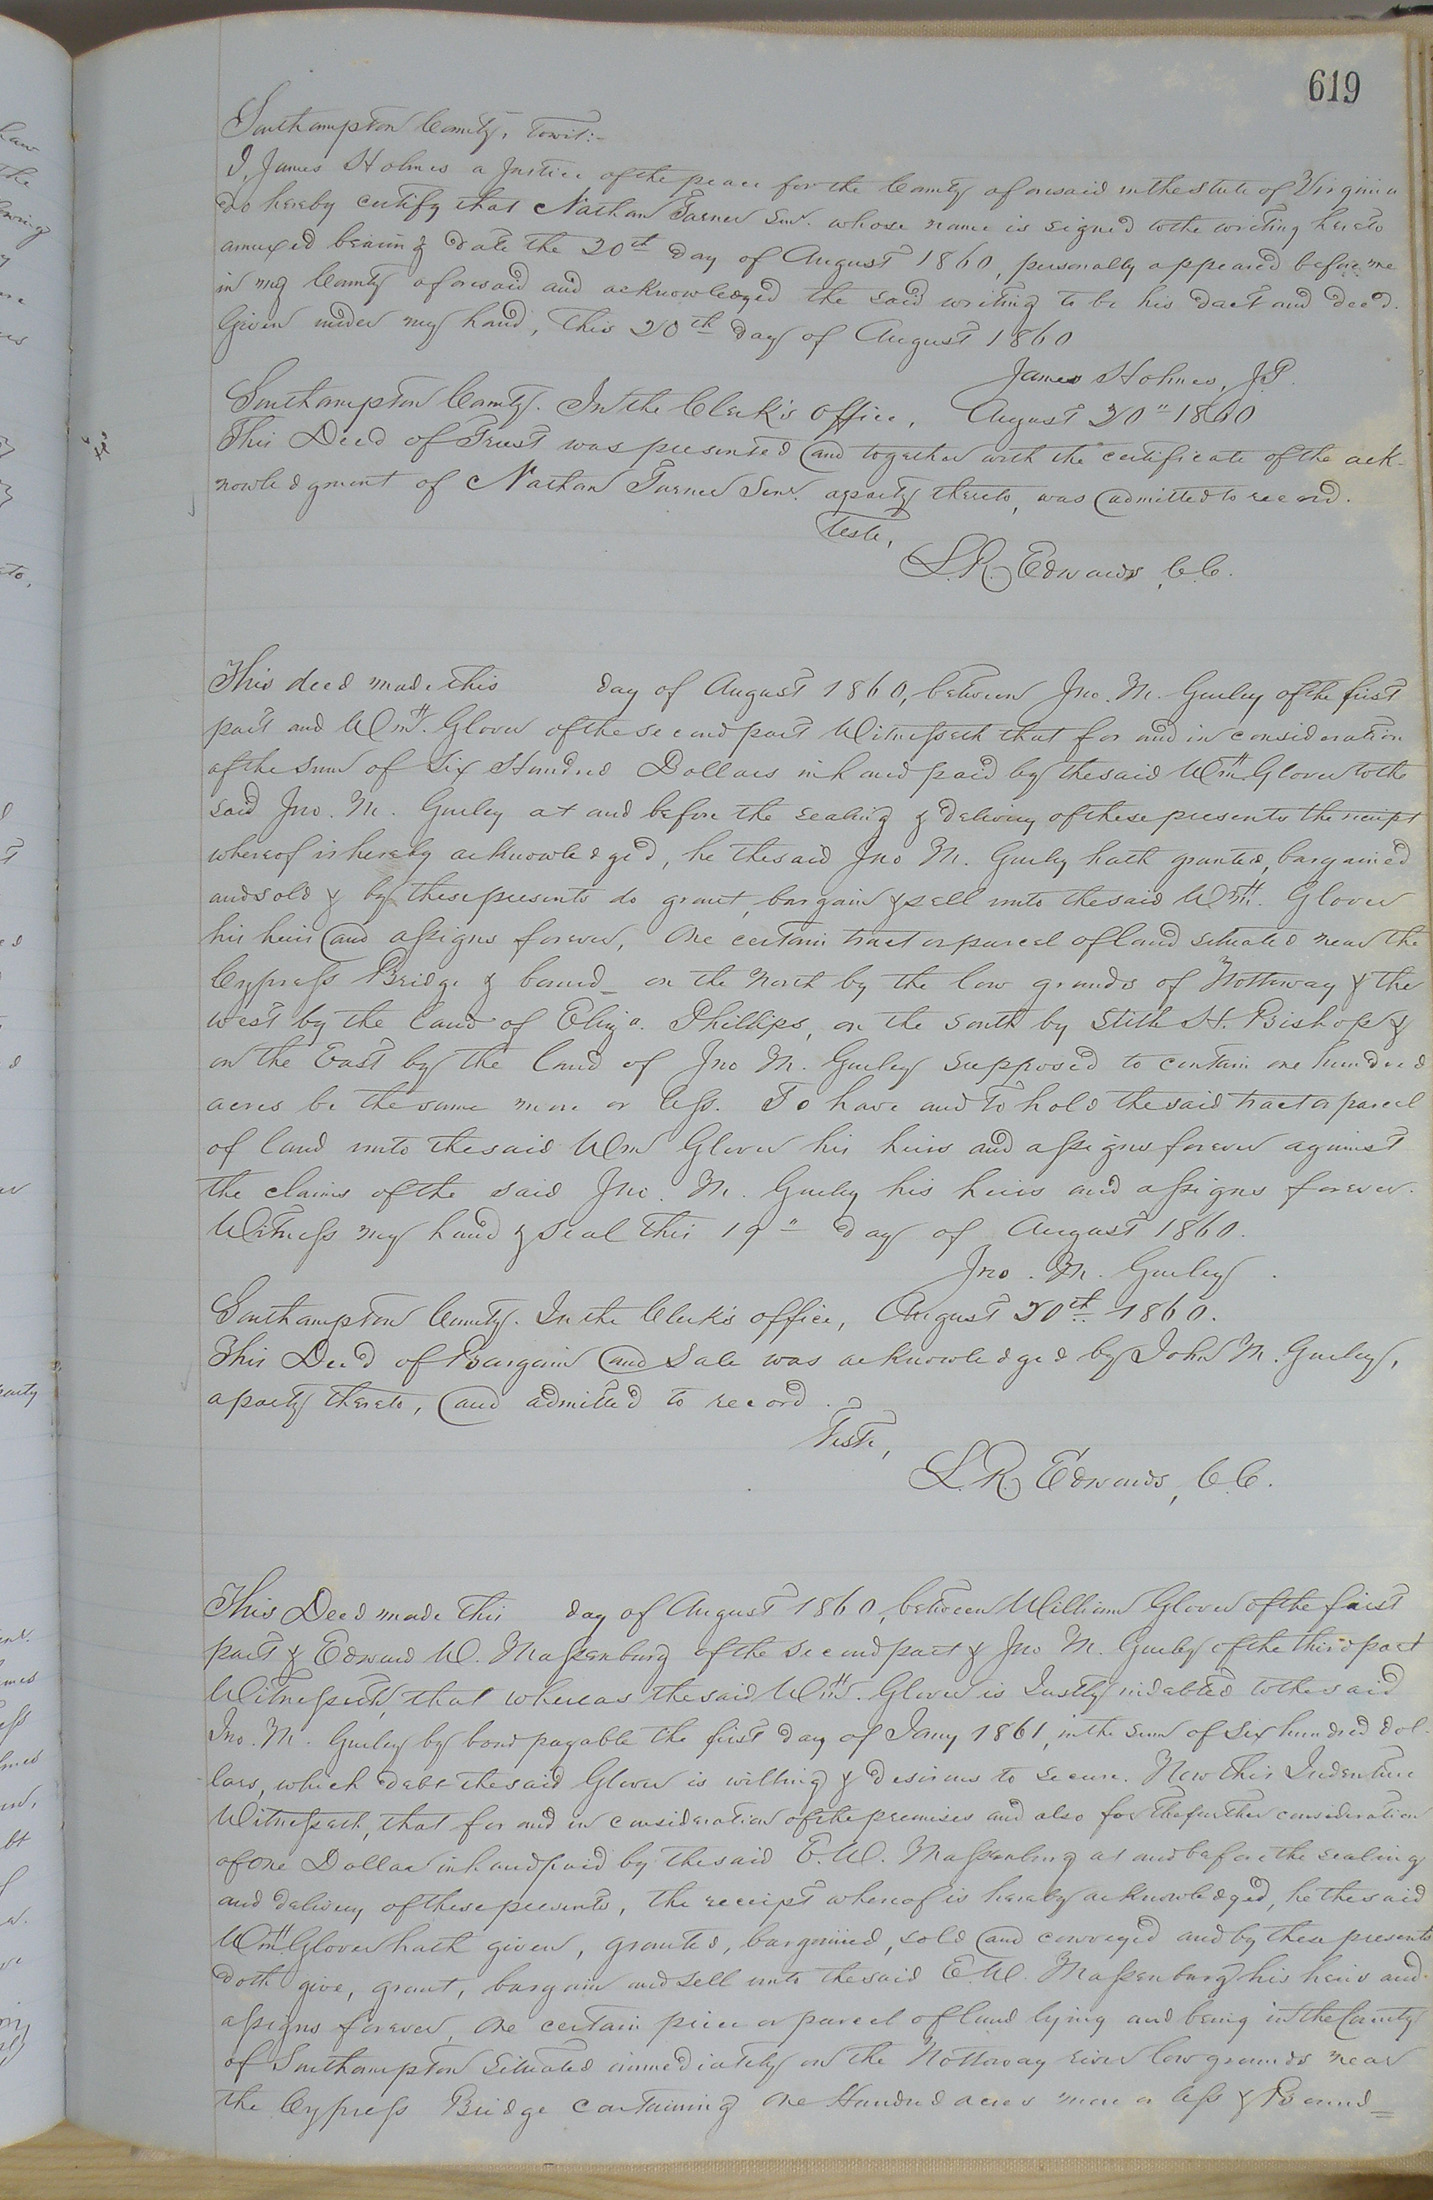 619
Southampton County, Towit:-
I, James Holmes a Justice of the peace for the County aforesaid in the state of Virginia
do hereby certify that Nathan Turner Senr. whose name is signed to the writing hereto
annexed bearing date the 20th day of August 1860, personally appeared before me
in my County aforesaid and acknowledged the said writing to be his act and deed.
Given under my hand, this 20th day of August 1860
James Holmes, J.P.
Southampton County. In the Clerk's office, August 20" 1860
This Deed of Trust was presented and together with the certificate of the ack-
nowledgment of Nathan Turner Senr. a party thereto, was admitted to record.
Teste,
L. R. Edwards, C.C.
This deed made this day of August 1860, between Jno. M. Gurley of the first
part and Wm. H. Glover of the second part Witnesseth that for and in consideration
of the sum of Six Hundred Dollars in hand paid by the said Wm H Glover to the
said Jno. M. Gurley at and before the sealing & delivery of these presents the receipt
whereof is hereby acknowledged, he the said Jno M. Gurley hath granted, bargained
and sold & by these presents do grant, bargain & sell unto the said Wm. H. Glover
his heirs and assigns forever, One certain tract or parcel of land situated near the
Cypress Bridge & bound_ on the North by the low grounds of Nottoway & the
west by the land of Eliza. Phillips, on the South by Stith H. Bishop &
on the East by the land of Jno M. Gurley supposed to contain one hundred
acres be the same more or less. To have and to hold the said tract or parcel
of land unto the said Wm Glover his heirs and assigns forever against
the claims of the said Jno. M. Gurley his heirs and assigns forever.
Witness my hand & seal this 19" day of August 1860.
Jno. M. Gurley.
Southampton County. In the Clerk's office, August 20th 1860.
This Deed of Bargain and Sale was acknowledged by John M. Gurley,
a party thereto, and admitted to record.
Teste,
L. R. Edwards, C.C.
This Deed made this day of August 1860, between William Glover of the first
part & Edward W. Massenburg of the second part & Jno M. Gurley of the third part
Witnesseth, that whereas the said Wm H. Glover is Justly indebted to the said
Jno. M. Gurley by bond payable the first day of Jany 1861, in the sum of six hundred dol-
lars, which debt the said Glover is willing & desirous to secure. Now this Indenture
Witnesseth, that for and in consideration of the premises and also for the further consideration
of One Dollar in hand paid by the said E. W. Massenburg at and before the sealing
and delivery of these presents, the receipt whereof is hereby acknowledged, he the said
Wm H Glover hath given, granted, bargained, sold and conveyed and by these presents
doth give, grant, bargain and sell unto the said E. W. Massenburg his heirs and
assigns forever, One certain piece or parcel of land lying and being in the County
of Southampton situated immediately on the Nottoway river low grounds near
the Cypress Bridge containing One Hundred acres more or less & Bound=